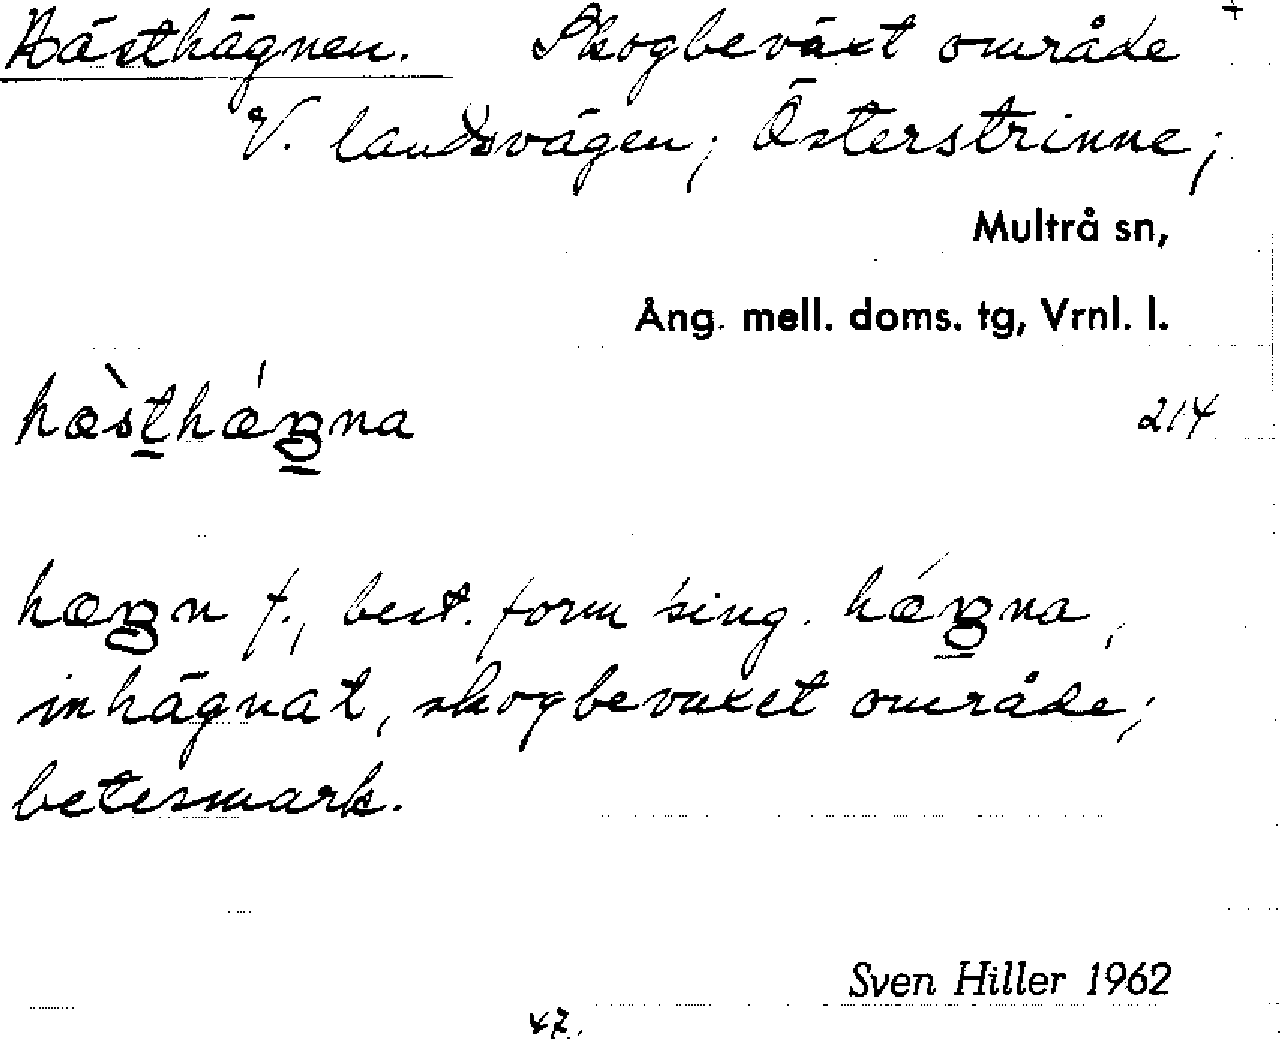 Hästhägnen. Skogbeväxt område +
V. landsvägen; Österstrinne;
Multrå sn,
Ång. mell. doms. tg, Vrnl. l.
hæ̀sthǽgna 214
hægn f., best. form sing. hǽgna,
inhägnat, skogbevuxet område;
betesmark.
Sven Hiller 1962